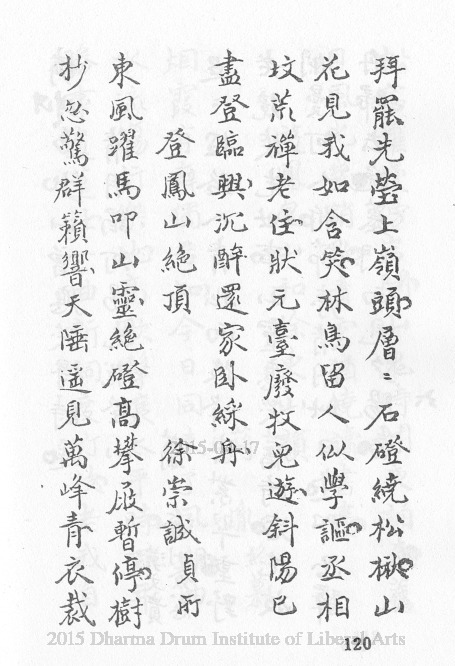 拜罷先塋上嶺頭層〻石磴繞松楸山
花見我如含笑林鳥留人似學謳丞相
坟荒禅老住狀元臺廢牧兒遊斜陽已
盡登臨興沉醉還家卧綵舟
登鳳山絶頂 徐崇誠貞所
東風躍馬叩山靈絶磴高攀屐暫停樹
杪忽驚群籟響天陲遥見萬峰青衣裁
2015-04-17
2015 Dharma Drum Institute of Liberal Arts
120